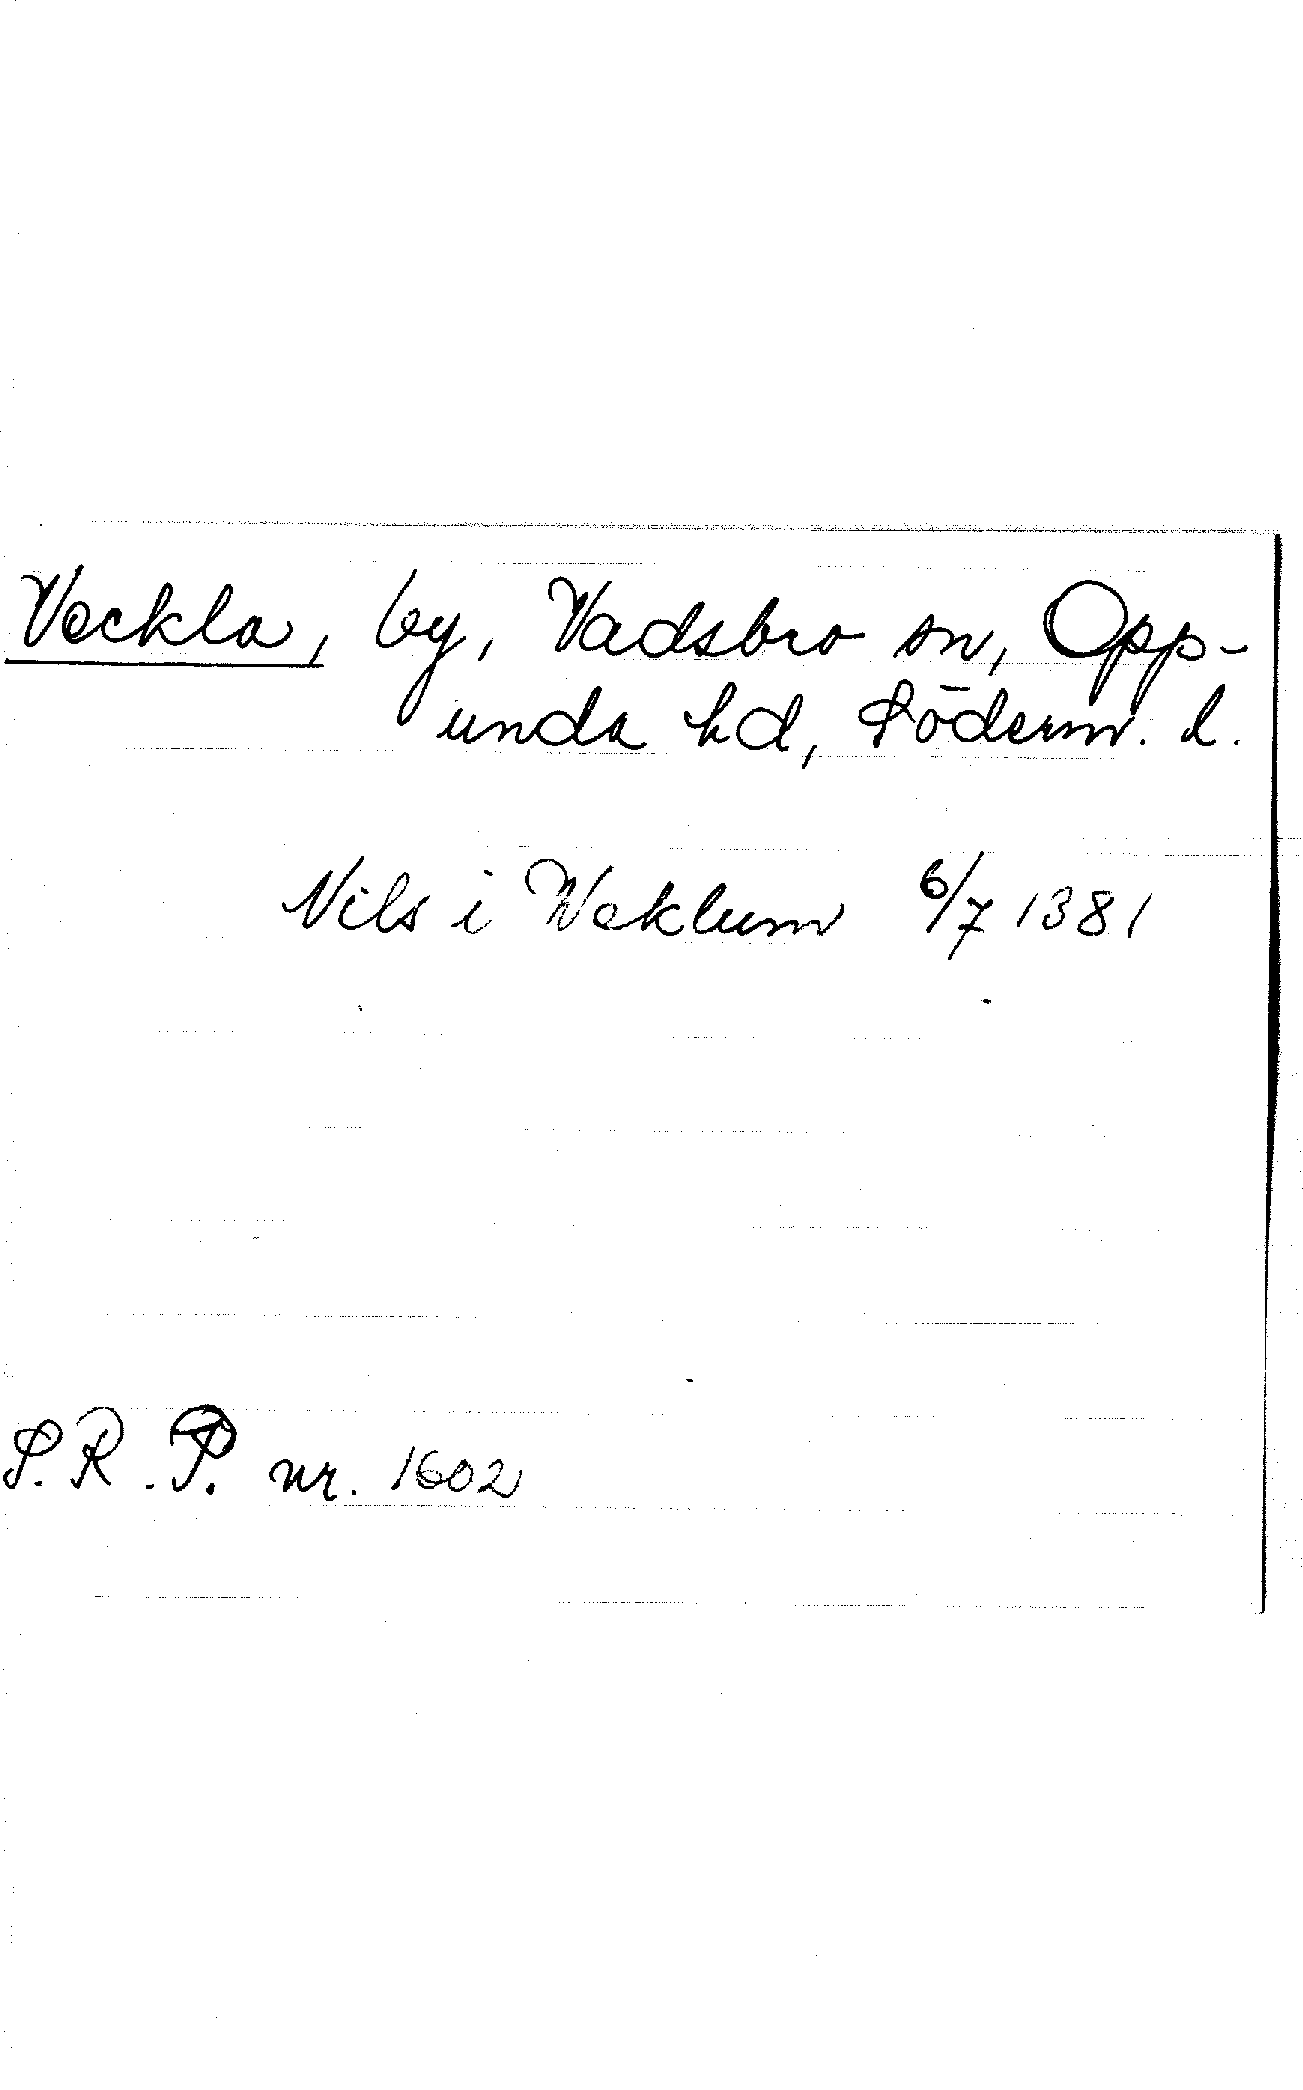 Vockla, by, Vadsbro sn, Opp-
unda hd, Söderm. l.
Nils i Woklum 6/7 1381
S.R.P. nr. 1602